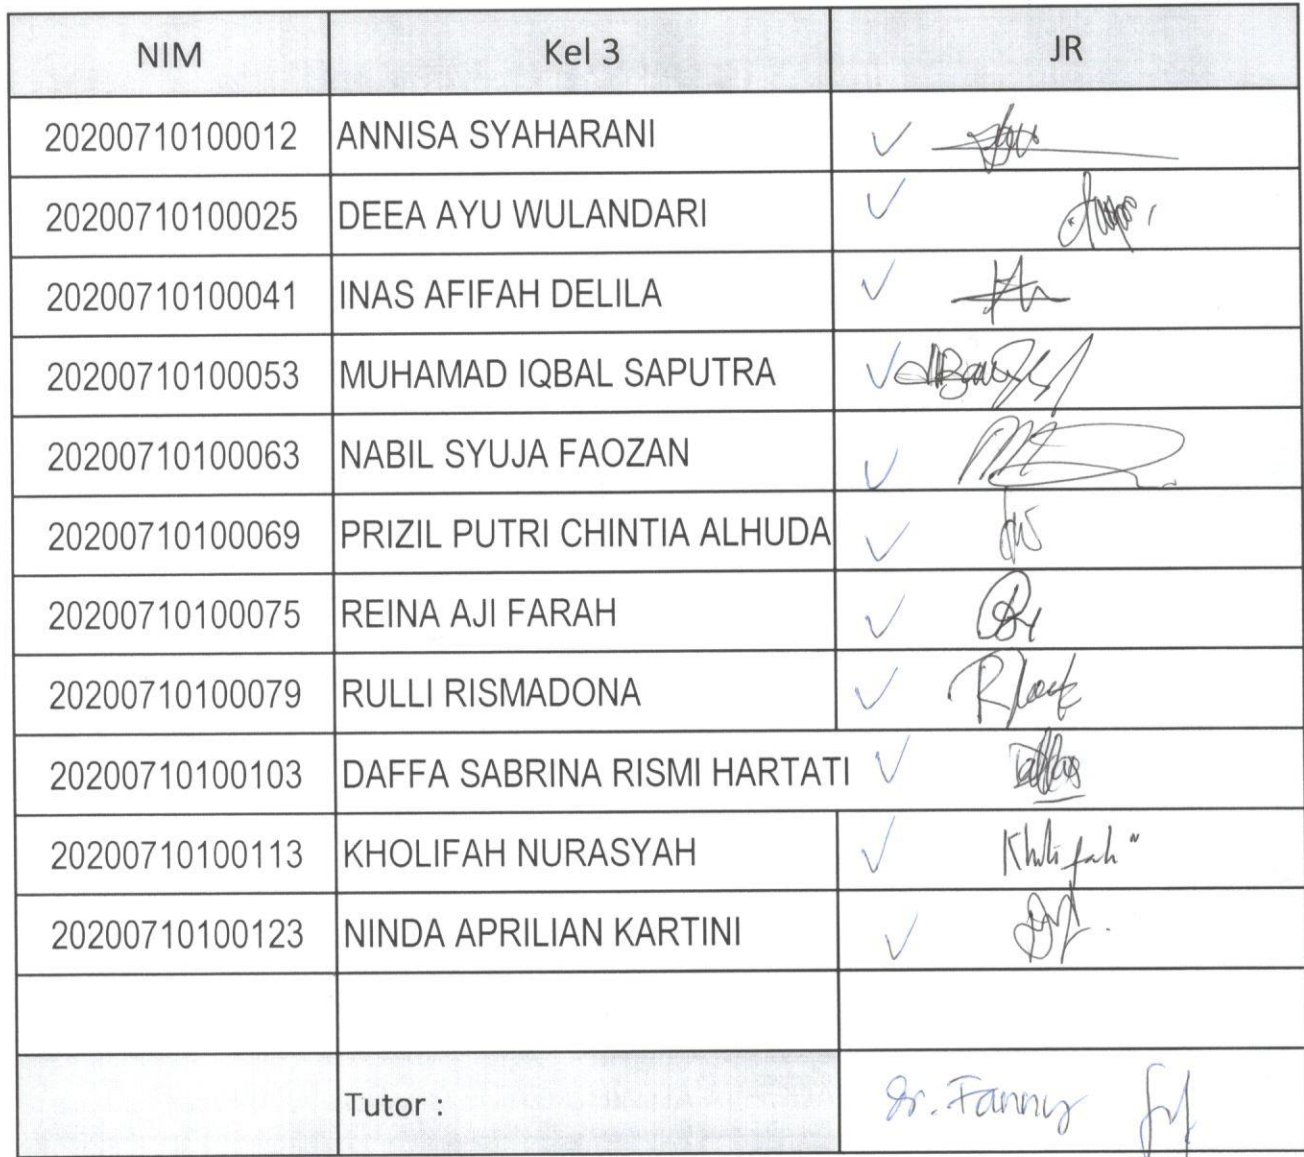 NIM Kel 3 JR
20200710100012 ANNISA SYAHARANI ✓
20200710100025 DEEA AYU WULANDARI ✓
20200710100041 INAS AFIFAH DELILA ✓
20200710100053 MUHAMAD IQBAL SAPUTRA ✓
20200710100063 NABIL SYUJA FAOZAN ✓
20200710100069 PRIZIL PUTRI CHINTIA ALHUDA ✓
20200710100075 REINA AJI FARAH ✓
20200710100079 RULLI RISMADONA ✓
20200710100103 DAFFA SABRINA RISMI HARTATI ✓
20200710100113 KHOLIFAH NURASYAH ✓ Kholifah
20200710100123 NINDA APRILIAN KARTINI ✓
Tutor : dr. Fanny